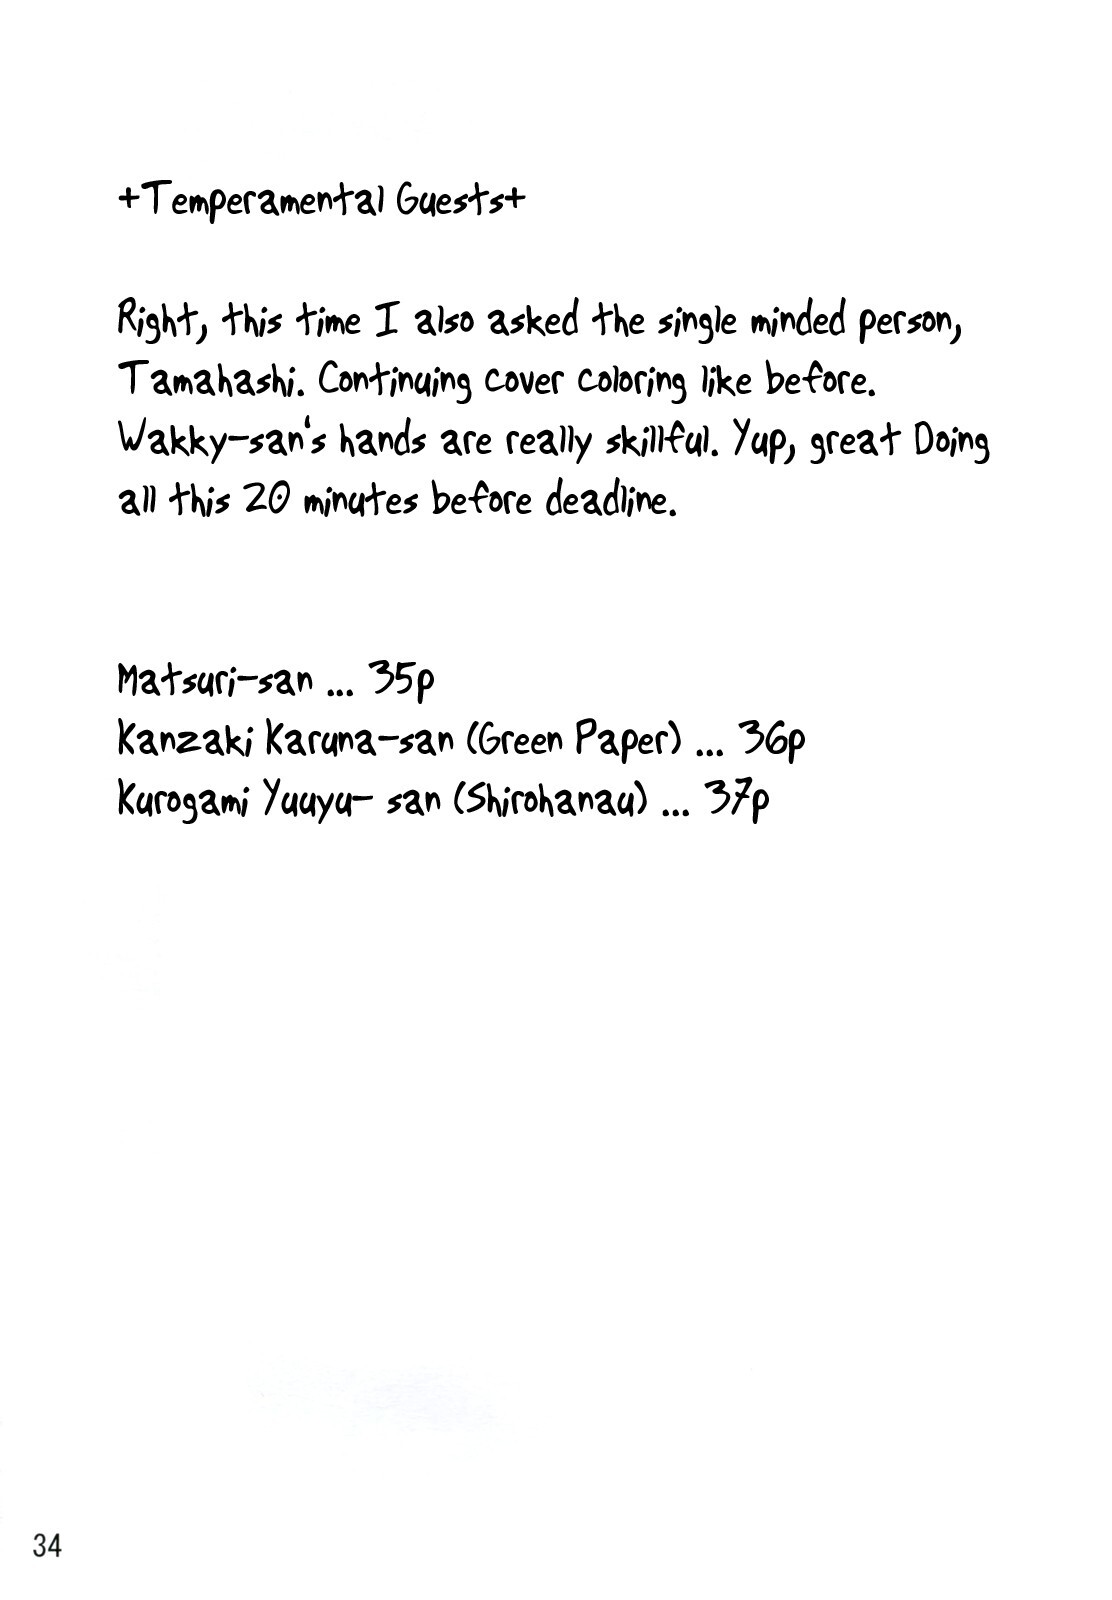 +Temperamental Guests+
Right, this time I also asked the single minded person,
Tamahashi. Continuing cover coloring like before.
Wakky-san's hands are really skillful. Yup, great Doing
all this 20 minutes before deadline.
Matsuri-san ... 35p
Kanzaki Karuna-san (Green Paper) ... 36p
Kurogami Yuuyu- san (Shirohanau) ... 37p
34